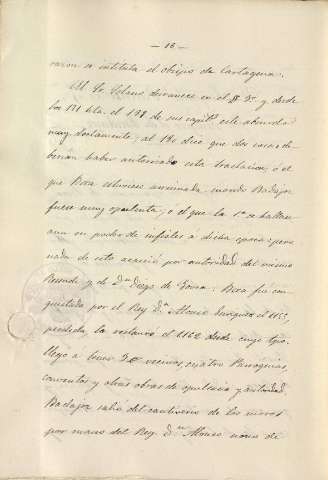 — 16 —
razon se intitula el obispo de Cartagena.
El Sr. Solano desvanece en el § 3º y desde
los 131 hta. el 198 de sus capit.s este absurdo
muy doctamente; al 180 dice que dos cosas de-
bieron haber autorizado esta traslacion; ó el
que Beva estuviese arruinada cuando Badajoz
fuese muy opulenta; ó el que la 1ª se hallase
aun en poder de infieles á dicha epoca: pero
nada de esto acaeció por autoridad del mismo
Resende y de D.n Diego de Sousa: Beva fué con-
quistada por el Rey D.n Alonso Enriquez el
perdida, la restauró el 1162 desde cuyo tpo.
llegó á tener vecinos, cuatro Parroquias,
conventos y otras obras de opulencia y autoridad.
Badajoz salió del cautiverio de los moros
por mano del Rey D.n Alonso nono de